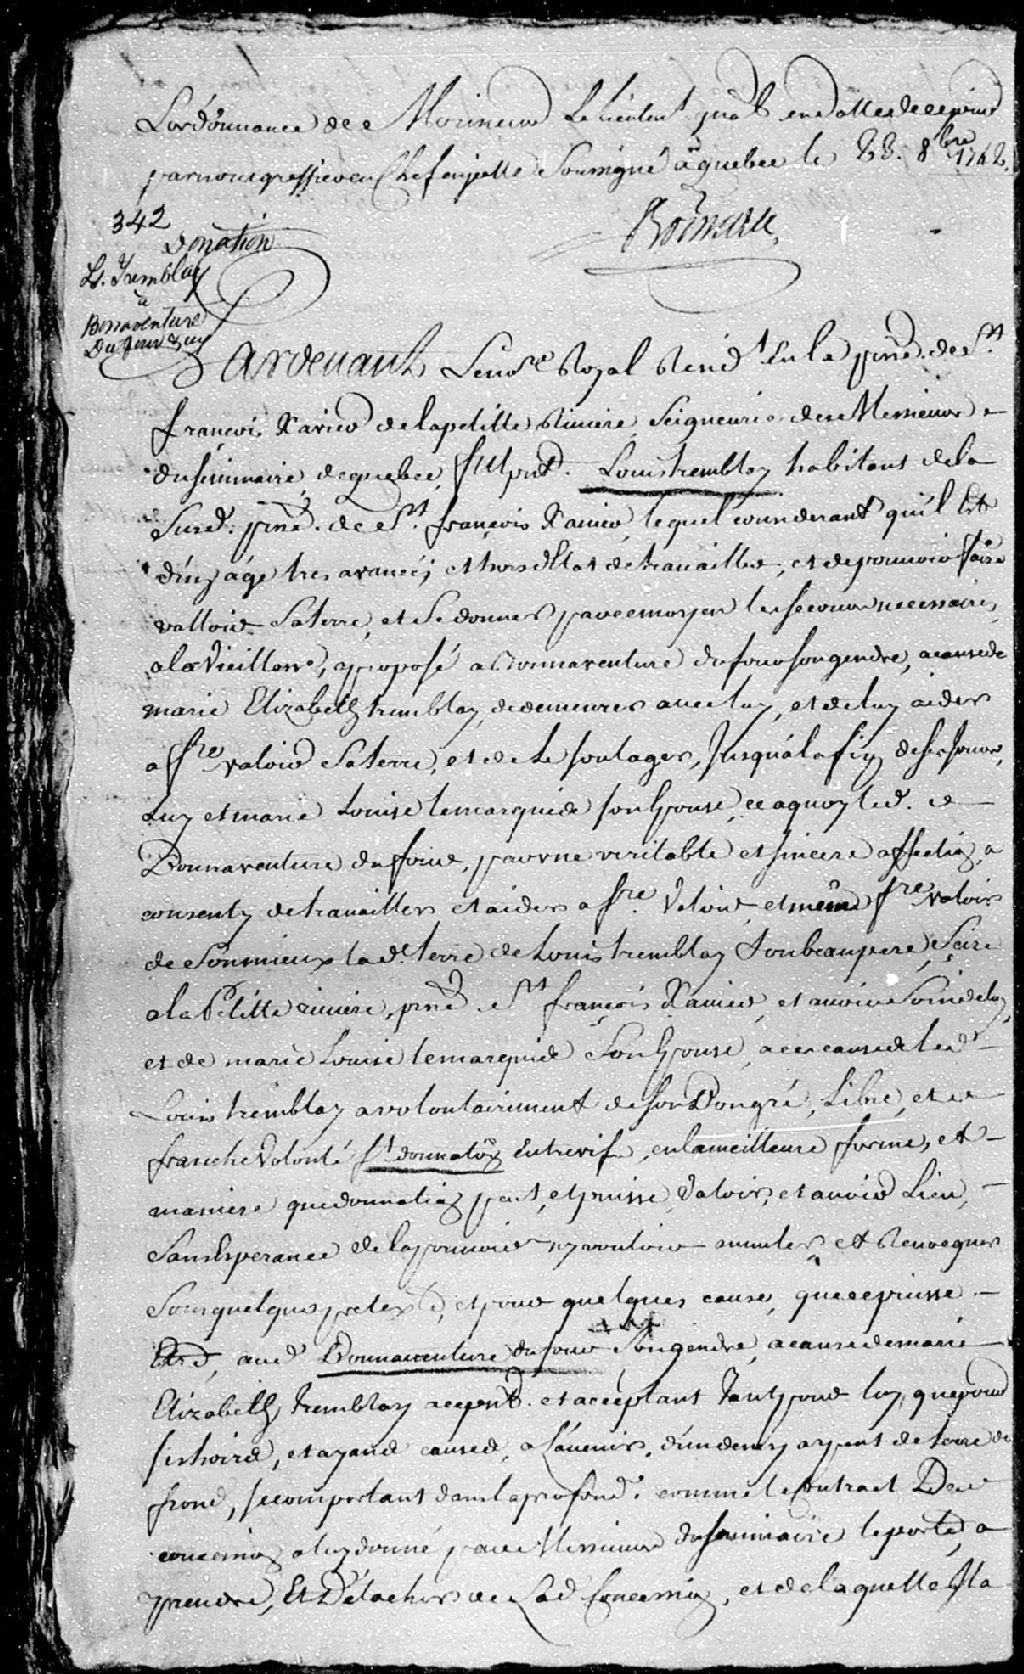 L'ordonnance de Monsieur Le Lieutent gnâl en datte de ce jour
par nous greffier en Chef en icelle Soussigné à quebec le 23. 8bre 1762.
Boisseau
342
Donation
Ls. Tremblay
a
Bonaventure
Dufour
Pardevant Le nore Royal Resid.t En la paroise. de St.
françois Xavier de la petitte Riviere Seigneurie de Messieurs
du seminaire de quebec fut pnt. Louis tremblay habitant de la
Susd. parse. de St. françois Xavier, lequel considerant qu'il Est
d'un âge tres avancé, et hors d'Etat de travailler, et de pouvoir faire
valloir Sa terre, et Se donner par ce moyen les secours necessaires,
a la Vieillesse, a proposé a Bonnaventure dufour son gendre, a cause de
marie Elizabeth tremblay, de demeurer avec luy, et de luy aider
a fre valoir Sa terre, et de Le soulager, Jusqu'a la fin de ses jours,
Luy et marie Louise lemarquide son Epouse, ce a quoy led.
Bonnaventure dufour, par une veritable et sincere affection a
consenty de travailler, et aider a fre. Valoir, et même fre valoir
de Son mieux lad. terre de Louis tremblay Son beau pere, Scize
a la Petitte riviere, parse. St françois Xavier, et avoir Soin de luy
et de marie Louise lemarquide Son Epouse, a ces causes led.
Louis tremblay a volontairement de Son Bon gré, Libre, et
franche Volonté ft donnatôn Entrevifs, en la meilleure forme, et
maniere que donnation peut, et puisse valoir, et avoir Lieu,
Sans Esperance de la pouvoir ny vouloir annuler, et Revoquer
Sous quelques pretextes, et pour quelques causes, que ce puisse
Etre, aud. Bonnaventure dufour Son gendre, a cause de marie
Elizabeth tremblay a ce pnt. et acceptant Tant pour luy, que pour
ses hoirs, et ayand cause, a l'avenir, d'un demy arpent de terre de
front, se comportant dans la profond. comme le Contract De
concession a luy donné par Messieurs du seminaire le porte, a
prendre, Et Détacher de Lad. Concession, et de laquelle Il a